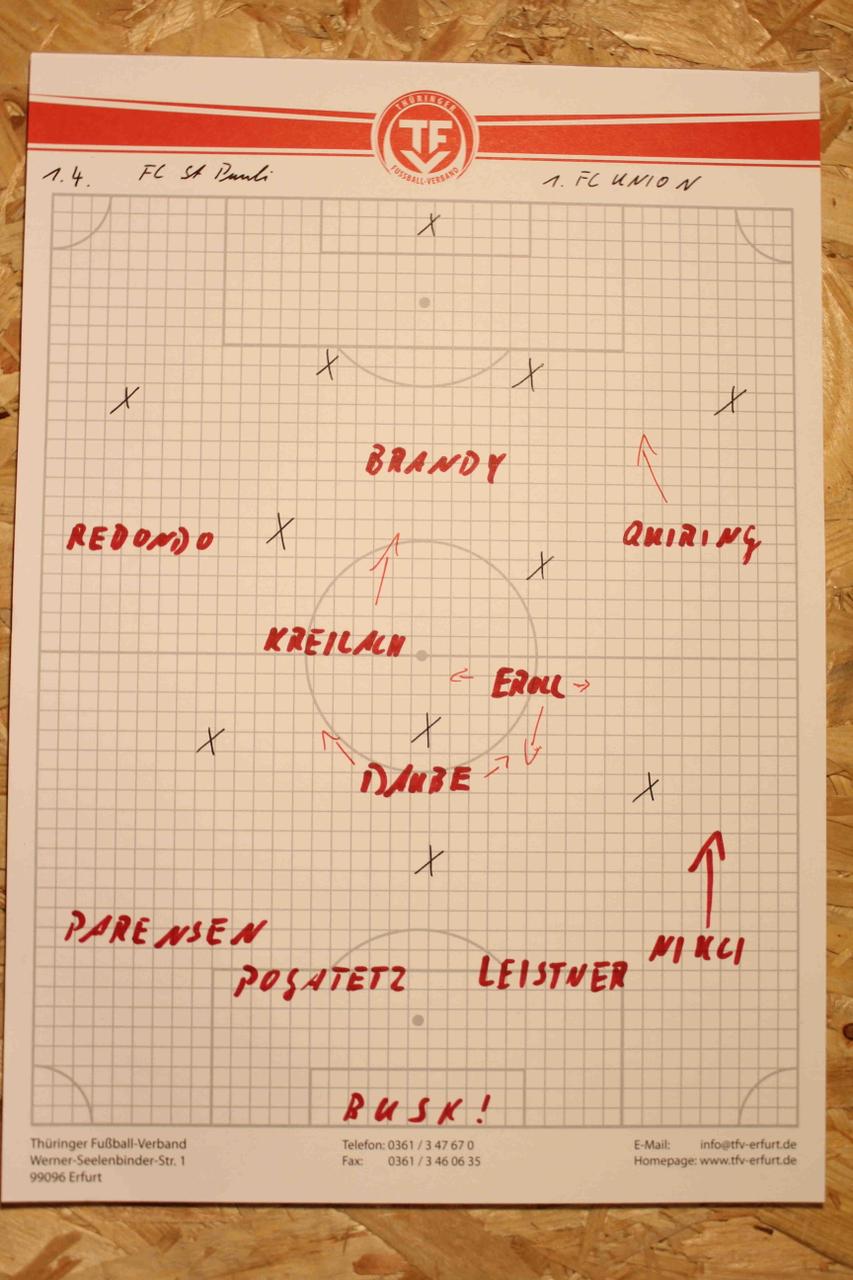 THÜRINGER
TF
FUSSBALL-VERBAND
1.4. FC St Pauli 1. FC UNION
BRANDY
REDONDO QUIRING
KREILACH
EROLL
DAUBE
PARENSEN
NIKCI
POGATETZ LEISTNER
BUSK!
Thüringer Fußball-Verband Telefon: 0361 / 3 47 67 0 E-Mail: info@tfv-erfurt.de
Werner-Seelenbinder-Str. 1 Fax: 0361 / 3 46 06 35 Homepage: www.tfv-erfurt.de
99096 Erfurt